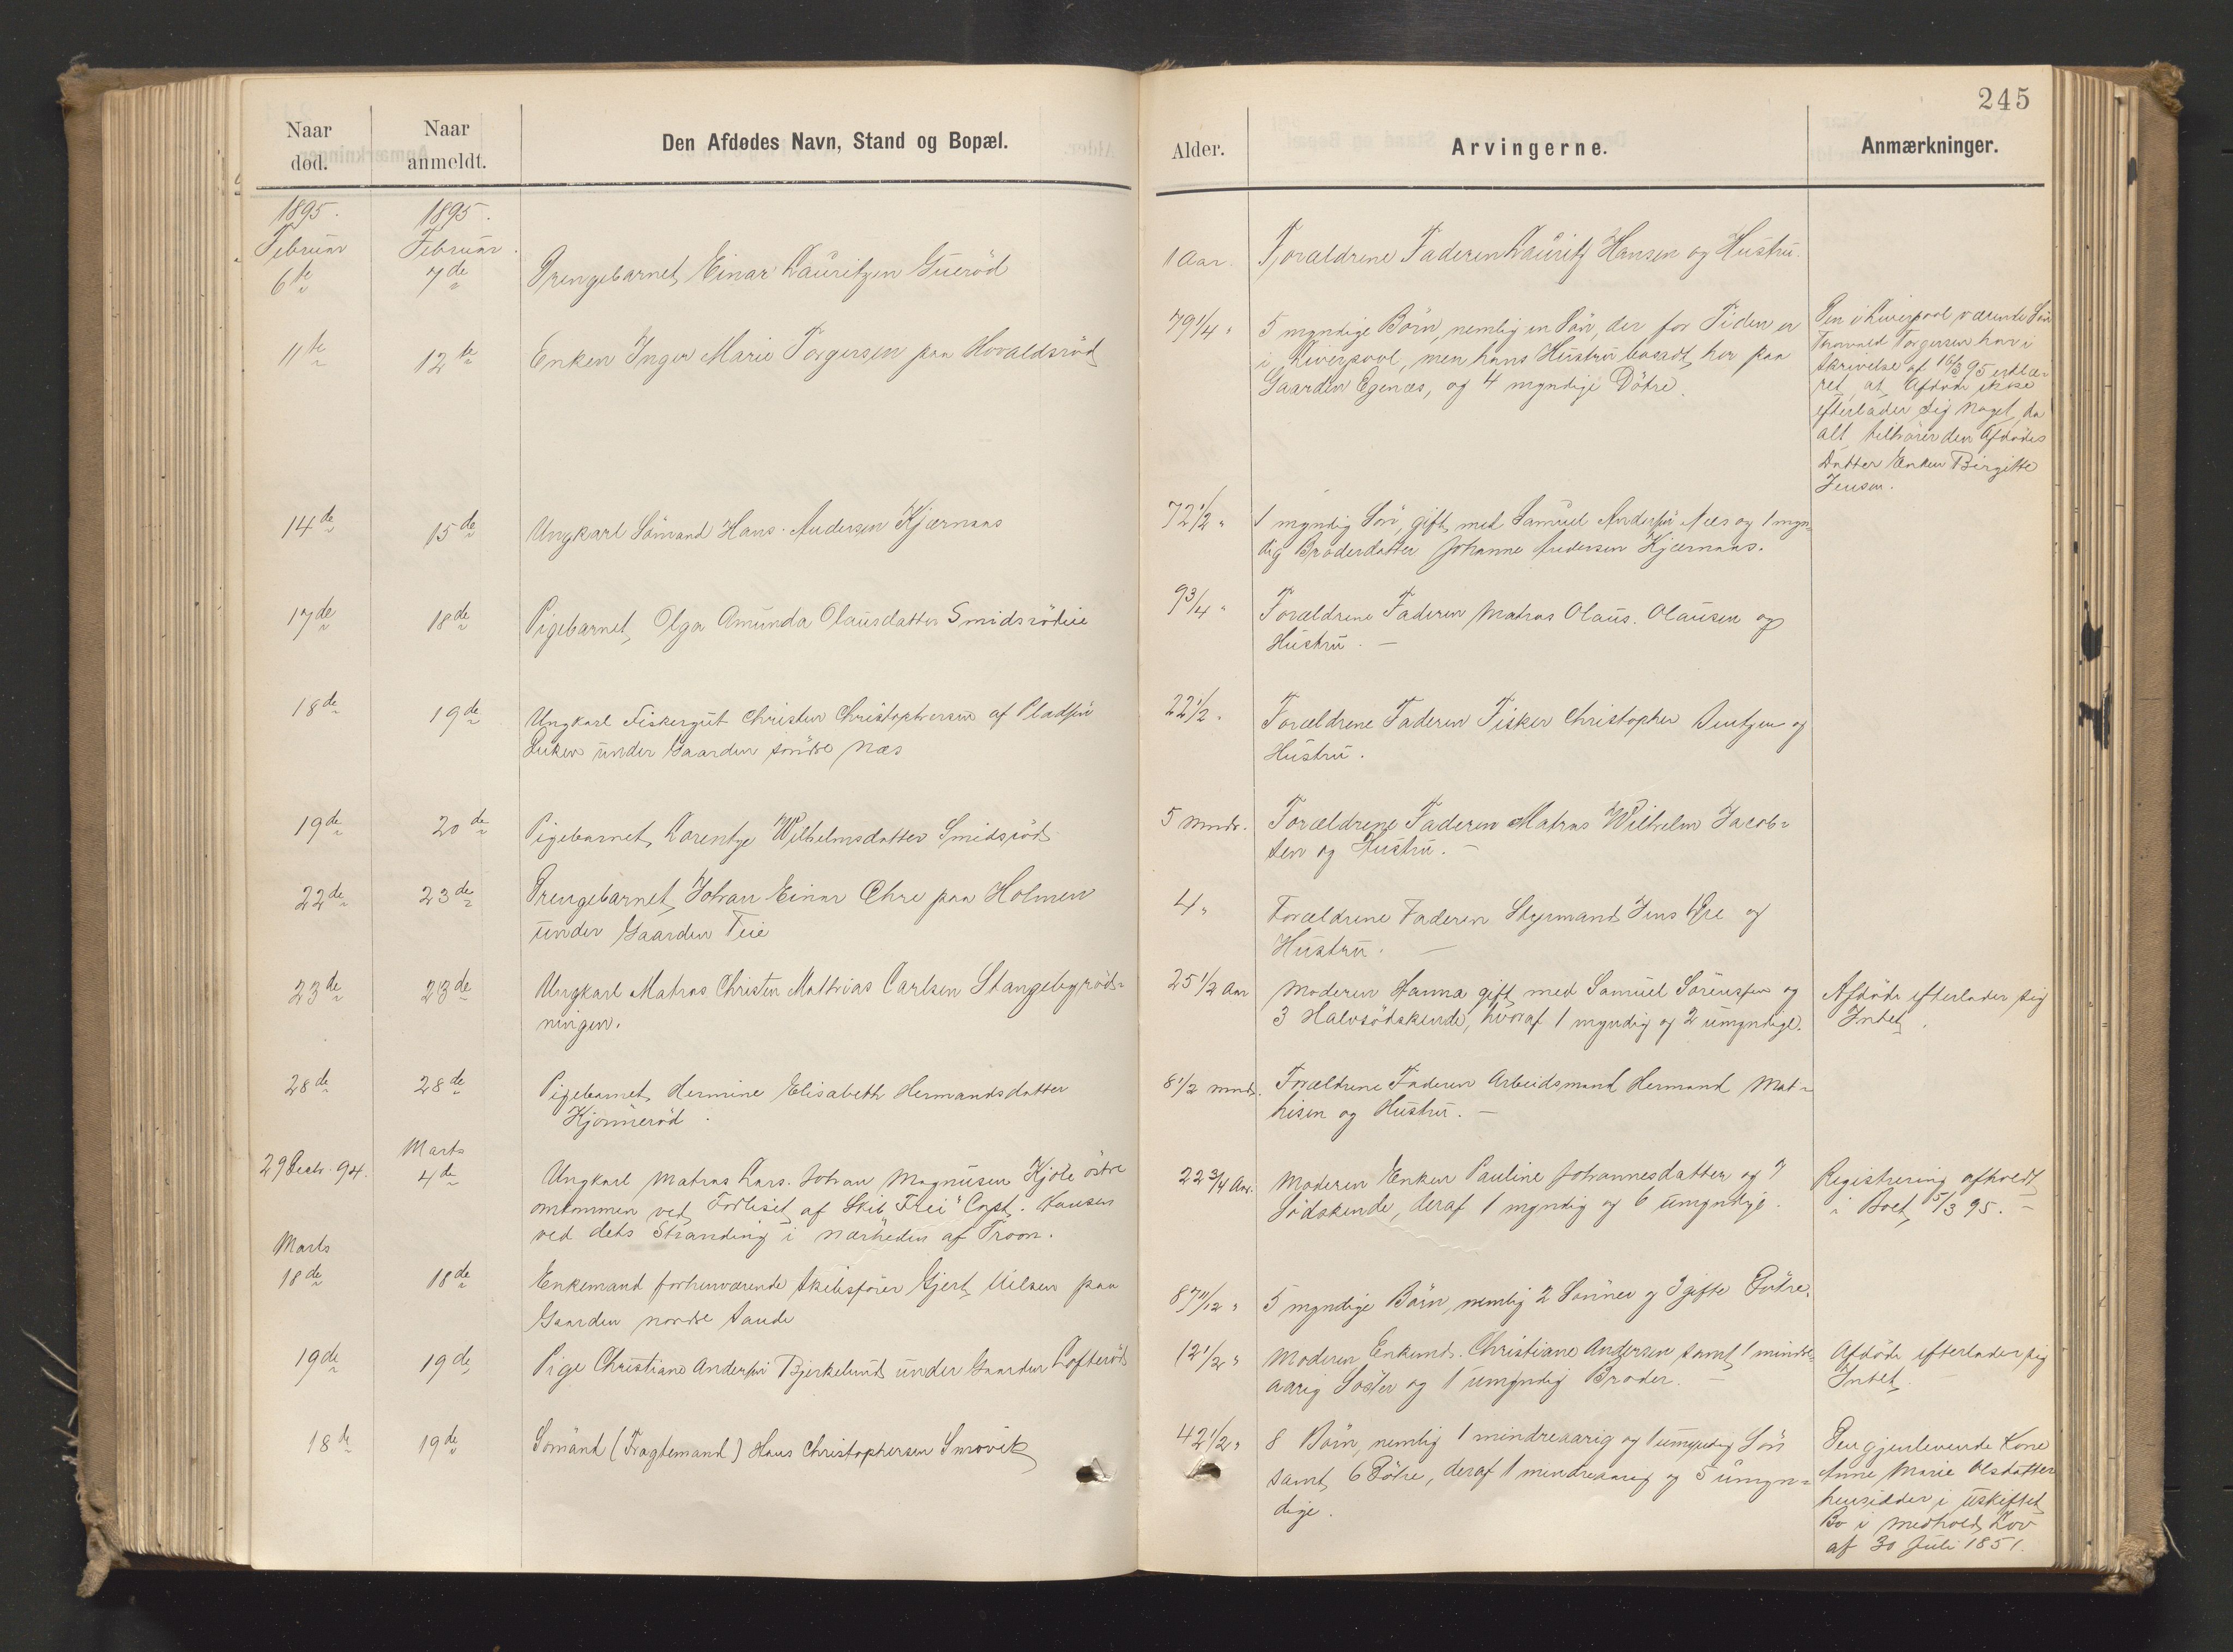 245
Naar død.
Naar anmeldt.
Den Afdødes Navn, Stand og Bopæl.
Alder.
Arvingerne.
Anmærkninger.
1895.
Februar
6te
1895.
Februar
7de
Drengebarnet Einar Lauritzen Guerød
1 Aar
Forældrene Faderen Lauritz Hansen og Hustru.
11te
12te
Enken Inger Marie Torgersen paa Hovaldsrød
79 1/4 "
5 myndige Börn, nemlig en Sön, der for Tiden er
i Liverpool, men hans Hustru bosadt her paa
Gaarden Egenæs, og 4 myndige Dötre.
Den i Liverpool værende Sön
Thorvald Torgersen har i
Skrivelse af 16/3 95 erklæ-
ret, at Afdöde ikke
efterlader sig noget, da
alt tilhører den Afdödes
Datter Enken Birgitte
Jensen.
14de
15de
Ungkarl Sömand Hans Andersen Kjærnaas
72 1/2 "
1 myndig gift med Samuel Andersen Næs og 1 myn-
dig Broderdatter Johanne Andersen Kjærnaas.
17de
18de
Pigebarnet Olga Amunda Olausdatter Smidsrödeie
9 3/4 "
Forældrene Faderen Matros Olaus Olausen og
Hustru. —
18de
19de
Ungkarl Fiskergut Christen Christophersen af Pladsen
under Gaarden söndre Næs
22 1/2 "
Forældrene Faderen Fisker Christopher og
Hustru.
19de
20de
Pigebarnet Lorentze Wilhelmsdatter Smidsröd
5 Mndr.
Forældrene Faderen Matros Wilhelm Jacob-
sen og Hustru. —
22de
23de
Drengebarnet Johan Einar Øhre paa Holmen
under Gaarden Teie
4 "
Forældrene Faderen Styrmand Jens Øre og
Hustru. —
23de
23de
Ungkarl Matros Christen Mathias Carlsen Stangebyröd-
ningen.
25 1/2 Aar
Moderen Hanna gift med Samuel Sörensen og
3 Halvsödskende, hvoraf 1 myndig og 2 umyndige.
Afdöde efterlader sig
Intet.
28de
28de
Pigebarnet Hermine Elisabeth Hermandsdatter
Kjönneröd.
8 1/2 Mndr.
Forældrene Faderen Arbeidsmand Hermand Mat-
hisen og Hustru. —
29 Decbr. 94.
Marts
4de
Ungkarl Matros Lars Johan Magnusen Kjöle östre
omkommen ved Forliset af Skib "Frei" Capt. Hansen
ved dets Stranding i nærheden af Troon.
22 3/4 Aar.
Moderen Enken Pauline Johannesdatter og 7
Södskende, deraf 1 myndig og 6 umyndige.
Registrering afholdt
i Boet 5/3 95. —
Marts
18de
18de
Enkemand forhenværende Skibsförer Gjert Nilsen paa
Gaarden nordre Sande
87 11/12 "
5 myndige Börn, nemlig 2 Sönner og 3 gifte Dötre.
19de
19de
Pige Christiane Andersen Bjerkelund under Gaarden Lofteröd
12 1/2 "
Moderen Christiane Andersen samt 1 mindre-
aarig Söster og 1 umyndig Broder. —
Afdöde efterlader sig
Intet.
18de
19de
Sömand (Fragtemand) Hans Christophersen Smørvik
42 1/2 "
8 Börn, nemlig 1 mindreaarig og 1 umyndig Sön
samt 6 Dötre, deraf 1 mindreaarig og 5 umyn-
dige.
Den gjenlevende Kone
Anne Marie Olsdatter
hensidder i uskiftet
Bo i medhold Lov
af 30 Juli 1851.